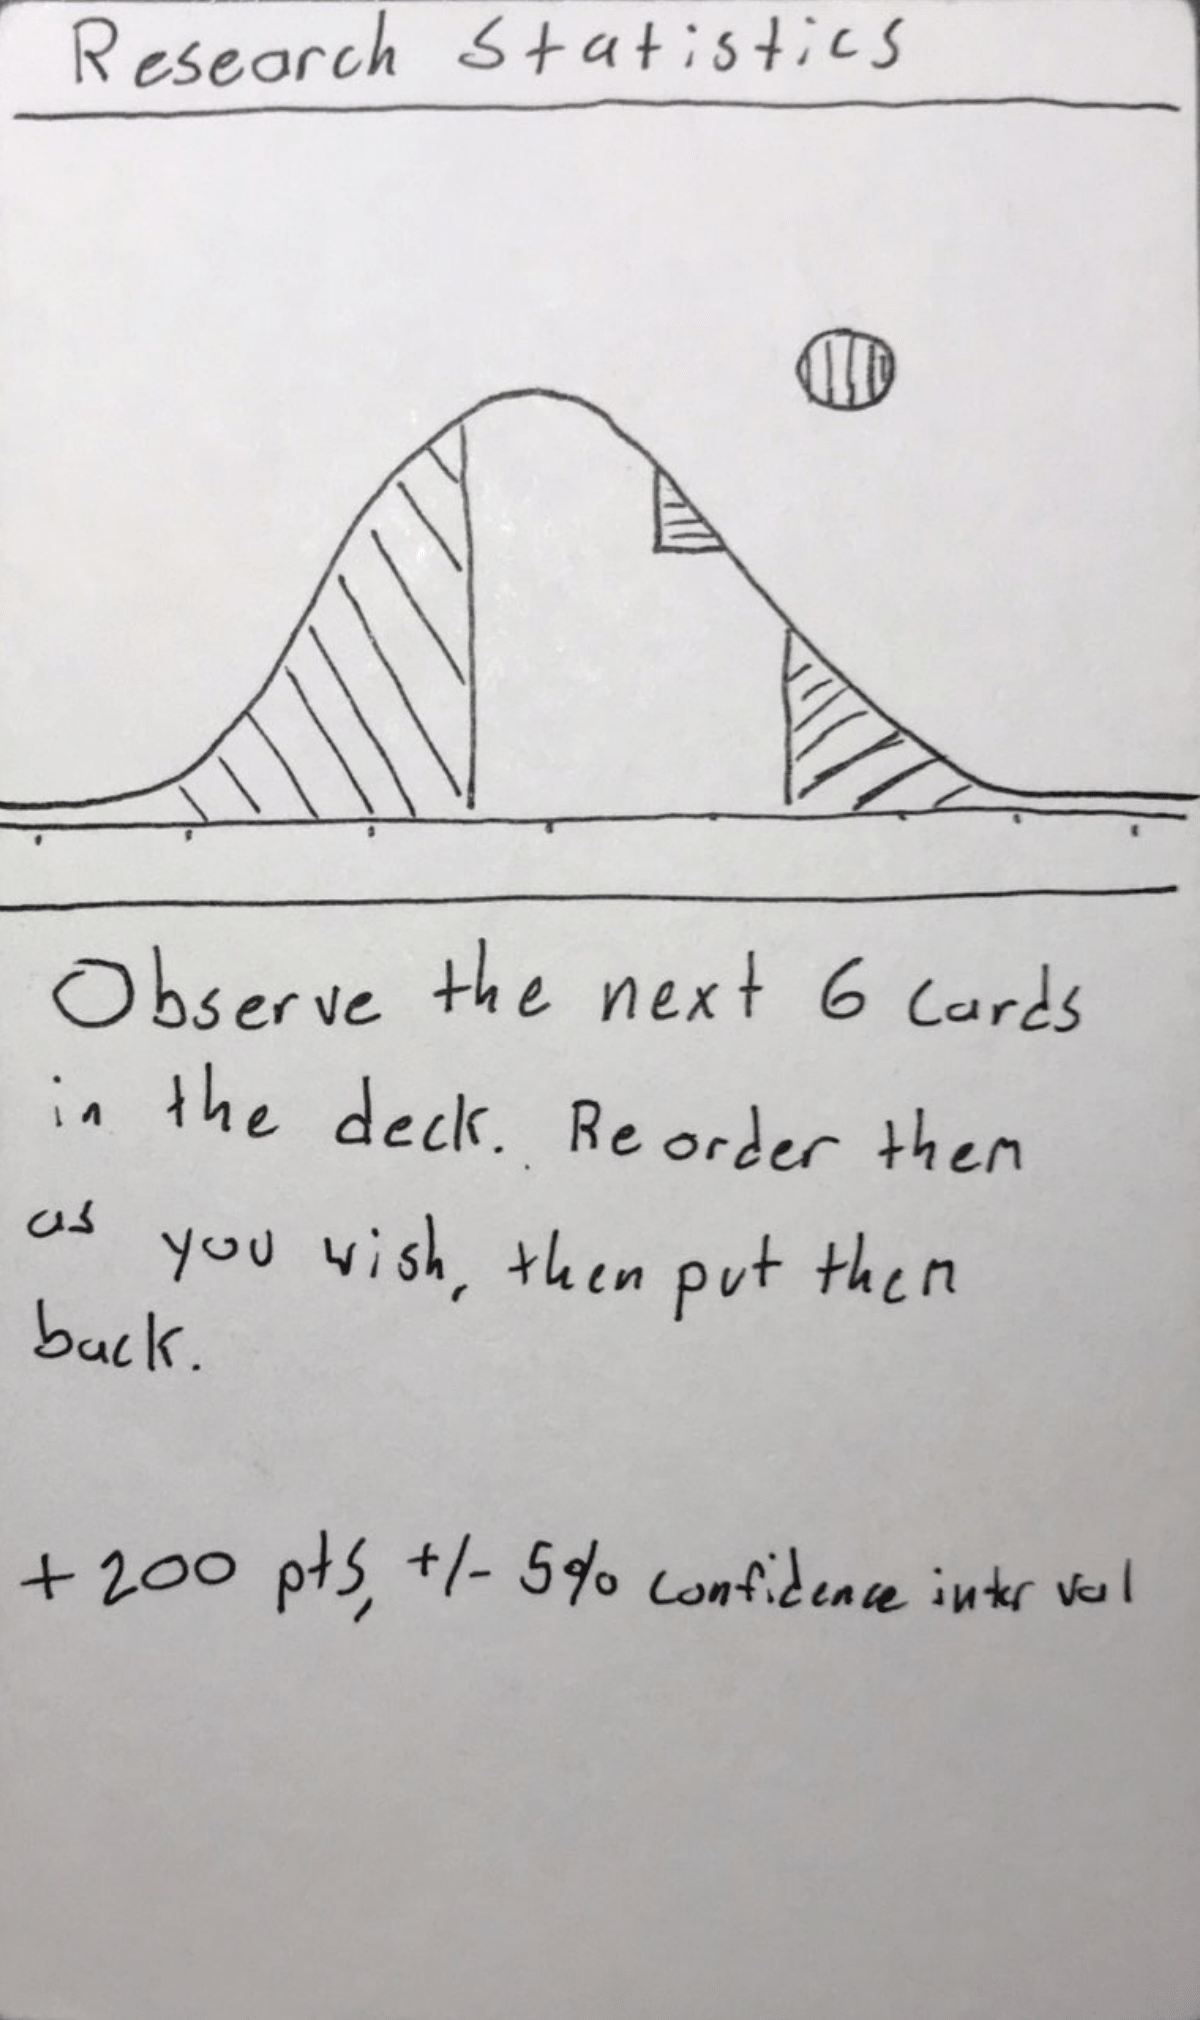 Research Statistics
Observe the next 6 cards
in the deck. Reorder them
as you wish, then put them
back.
+200 pts, +/- 5% confidence interval